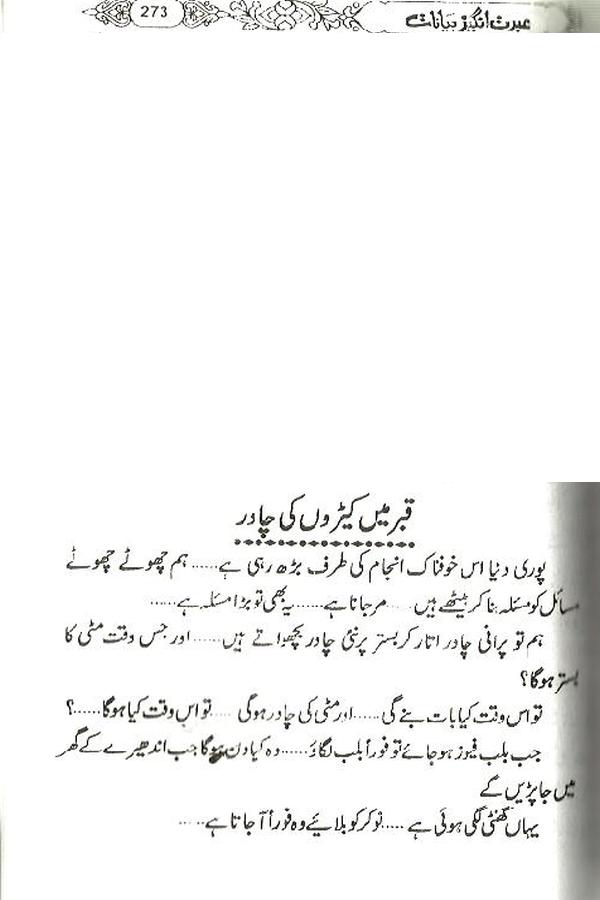 273
عبرت انگیز بیانات
قبر میں کیڑوں کی چادر
پوری دنیا اس خوفناک انجام کی طرف بڑھ رہی ہے...... ہم چھوٹے چھوٹے
مسائل کو مسئلہ بنا کر بیٹھے ہیں ...... مر جانا ہے...... یہ بھی تو بڑا مسئلہ ہے......
ہم تو پرانی چادر اتار کر بستر پر نئی چادر بچھواتے ہیں...... اور جس وقت مٹی کا
بستر ہوگا؟
تو اس وقت کیا بات بنے گی...... اور مٹی کی چادر ہوگی ...... تو اس وقت کیا ہوگا......؟
جب بلب فیوز ہو جائے تو فوراً بلب لگاؤ...... وہ کیا دن ہوگا جب اندھیرے کے گھر
میں جا پڑیں گے
یہاں گھنٹی لگی ہوئی ہے ..... نوکر کو بلائیے وہ فوراً آ جاتا ہے.....